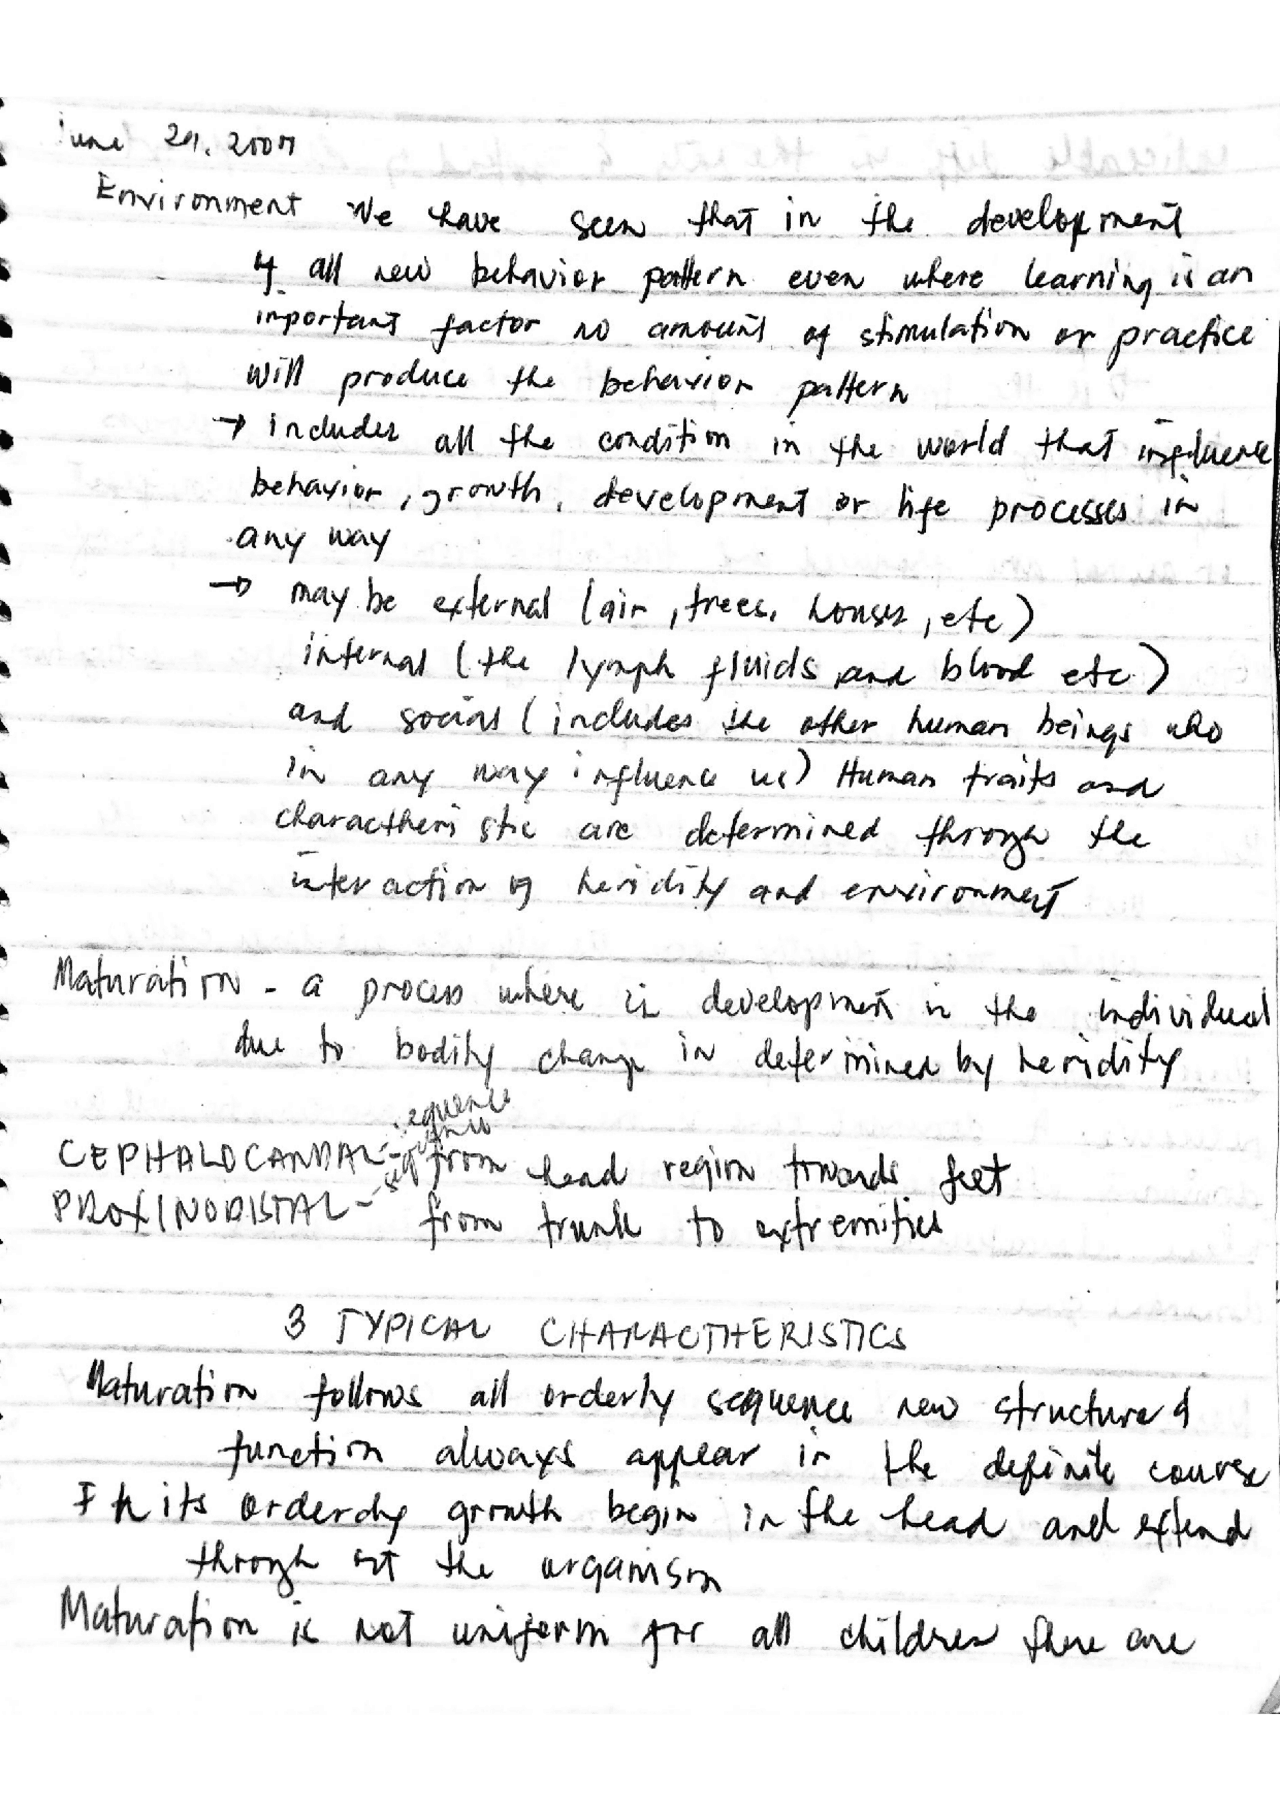 June 29, 2007
Environment We have seen that in the development
of all new behavior pattern even where learning is an
important factor no amount of stimulation or practice
will produce the behavior pattern
→ includes all the condition in the world that influence
behavior, growth, development or life processes in
any way
→ may be external (air, trees, houses, etc)
internal (the lymph fluids and blood etc)
and social (includes the other human beings who
in any way influence us) Human traits and
characteristic are determined through the
interaction of heridity and environment
Maturation - a process where is development in the individual
due to bodily change in determined by heridity
sequence
CEPHALOCANDAL - from head region towards feet
PROXINODISTAL - from trunk to extremities
3 TYPICAL CHARACTHERISTICS
Maturation follows all orderly sequence new structure &
function always appear in the definite course
In its orderdy growth begin in the head and extend
through out the organism
Maturation is not uniform for all children there are